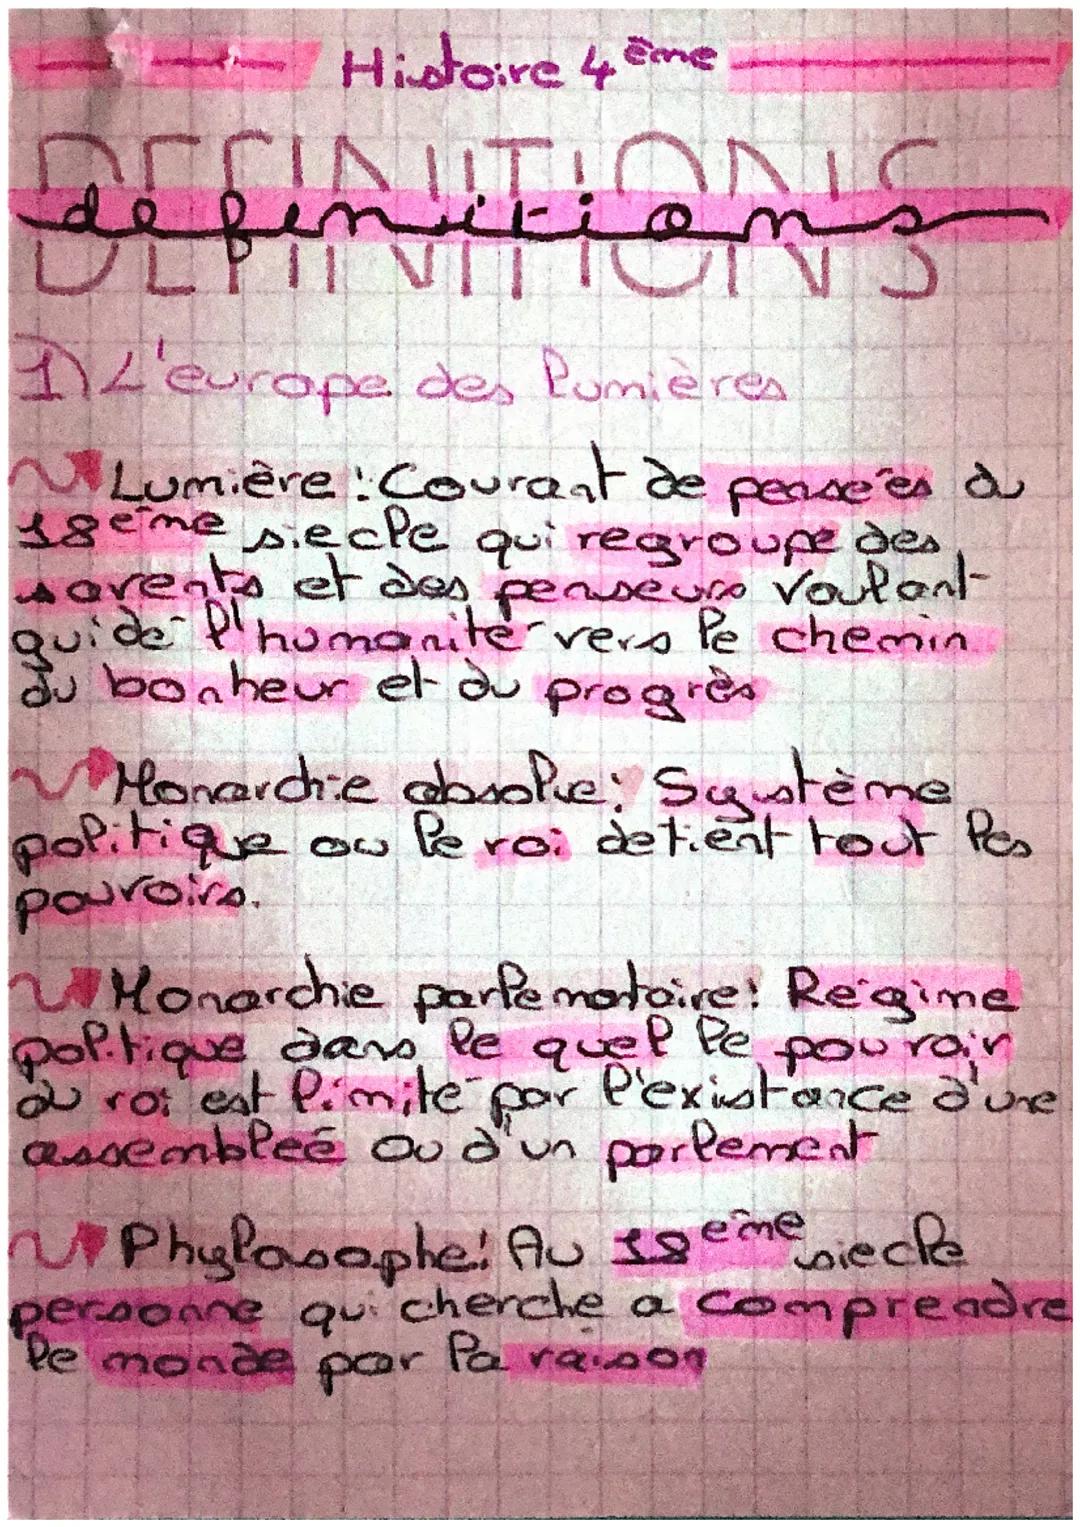 Histoire 4ème
DEFINITIONS
defenitions
1) L'europe des lumières
Lumière : Courant de pensées du
18ème siecle qui regroupe des
savents et des penseurs voulant
guidé l'humanité vers le chemin
du bonheur et du progrès
Monarchie absolue : Système
politique ou le roi detient tout les
pouvoirs.
Monarchie parlematoire : Régime
politique dans le quel le pouvoir
du roi est limité par l'existance d'une
assembleé ou d'un parlement
Phylosophe : Au 18ème siecle
personne qui cherche a comprendre
le monde par la raison